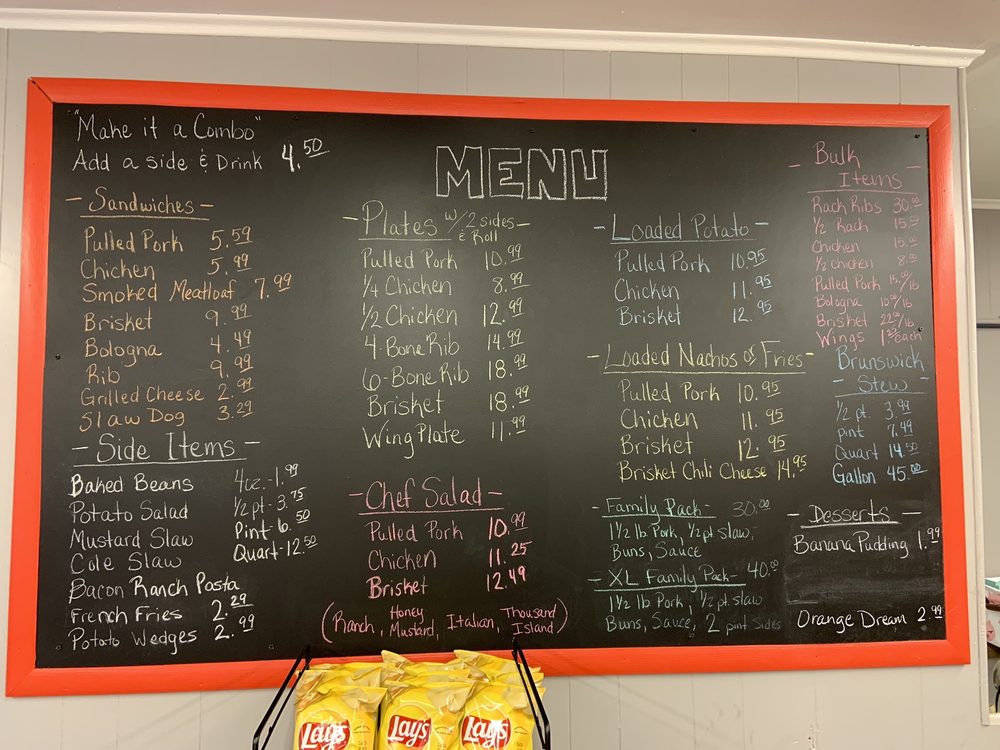 "Make it a Combo"
Add a side & Drink 4.50
- Sandwiches -
Pulled Pork 5.59
Chicken 5.99
Smoked Meatloaf 7.99
Brisket 9.99
Bologna 4.49
Rib 9.99
Grilled Cheese 2.99
Slaw Dog 3.29
- Side Items -
Baked Beans 4oz.-1.99
Potato Salad 1/2 pt-3.75
Mustard Slaw Pint-6.50
Cole Slaw Quart-12.50
Bacon Ranch Pasta
French Fries 2.29
Potato Wedges 2.99
MENU
- Plates w/2 sides & Roll -
Pulled Pork 10.99
1/4 Chicken 8.99
1/2 Chicken 12.99
4-Bone Rib 14.99
6-Bone Rib 18.99
Brisket 18.99
Wing Plate 11.99
- Chef Salad -
Pulled Pork 10.99
Chicken 11.25
Brisket 12.49
(Ranch, Honey Mustard, Italian, Thousand Island)
- Loaded Potato -
Pulled Pork 10.95
Chicken 11.95
Brisket 12.95
- Loaded Nachos or Fries -
Pulled Pork 10.95
Chicken 11.95
Brisket 12.95
Brisket Chili Cheese 14.95
- Family Pack - 30.00
1 1/2 lb Pork, 1/2 pt slaw,
Buns, Sauce
- XL Family Pack - 40.00
1 1/2 lb Pork, 1/2 pt slaw
Buns, Sauce, 2 pint sides
- Bulk -
Items
Rack Ribs 30.00
1/2 Rack 15.00
Chicken 15.00
1/2 Chicken 8.00
Pulled Pork 15.00/lb
Bologna 10.00/lb
Brisket 22.00/lb
Wings 1.25 each
Brunswick
- Stew -
1/2 pt. 3.99
pint 7.99
Quart 14.50
Gallon 45.00
- Desserts -
Banana Pudding 1.99
Orange Dream 2.99
Lay's
Lay's
Lay's